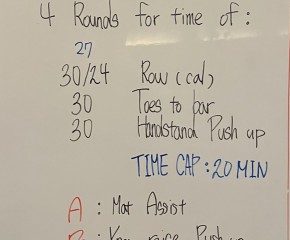 4 Rounds for time of :
27
30/24 Row (cal)
30 Toes to bar
30 Handstand Push up
TIME CAP : 20 MIN
A : Mat Assist